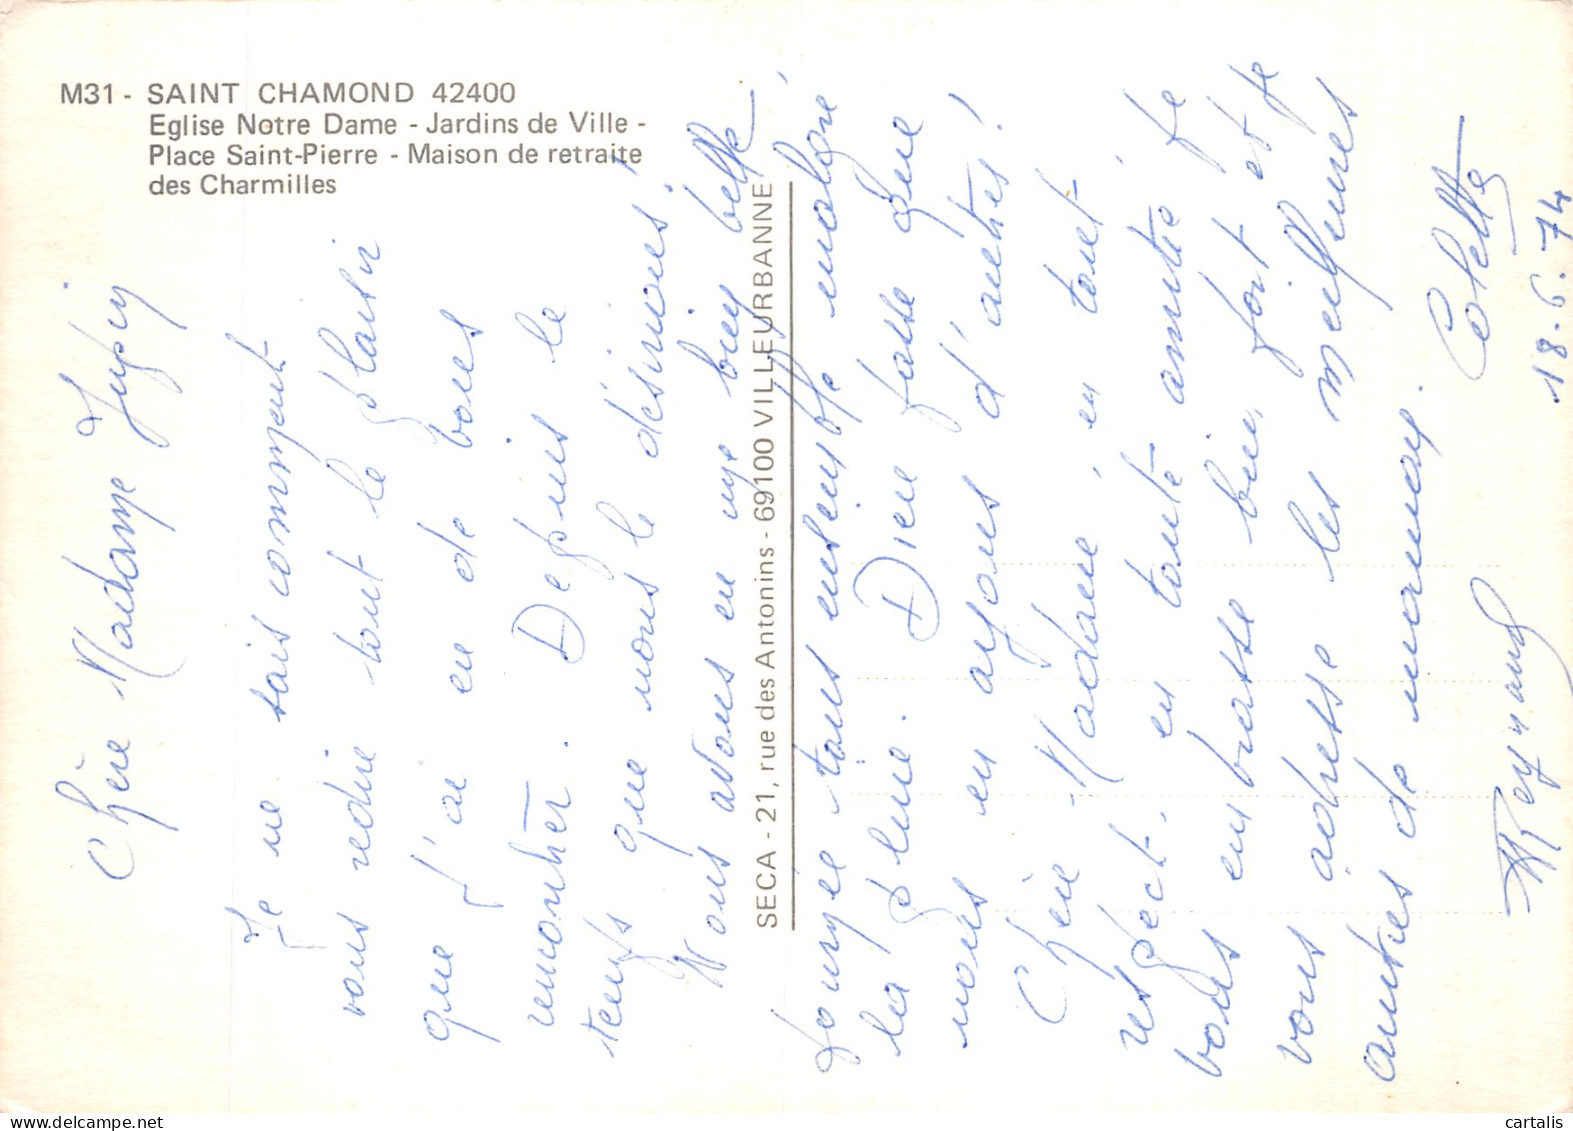 M31 - SAINT CHAMOND 42400
Eglise Notre Dame - Jardins de Ville -
Place Saint-Pierre - Maison de retraite
des Charmilles
SECA - 21, rue des Antonins - 69100 VILLEURBANNE
Chère Madame
Je ne sais comment
vous redire tout le plaisir
que j'ai eu de vous
rencontrer. Depuis le
temps que nous le désirions!
Nous avons eu une bien belle
journée tous ensemble malgré
la pluie. Dieu fasse que
nous en ayons d'autres!
Chère Madame, en tout
respect, en toute amitié je
vous embrasse bien fort et je
vous adresse les meilleures
autres de maman.
Colette
18.6.74
Reynaud
cartalis